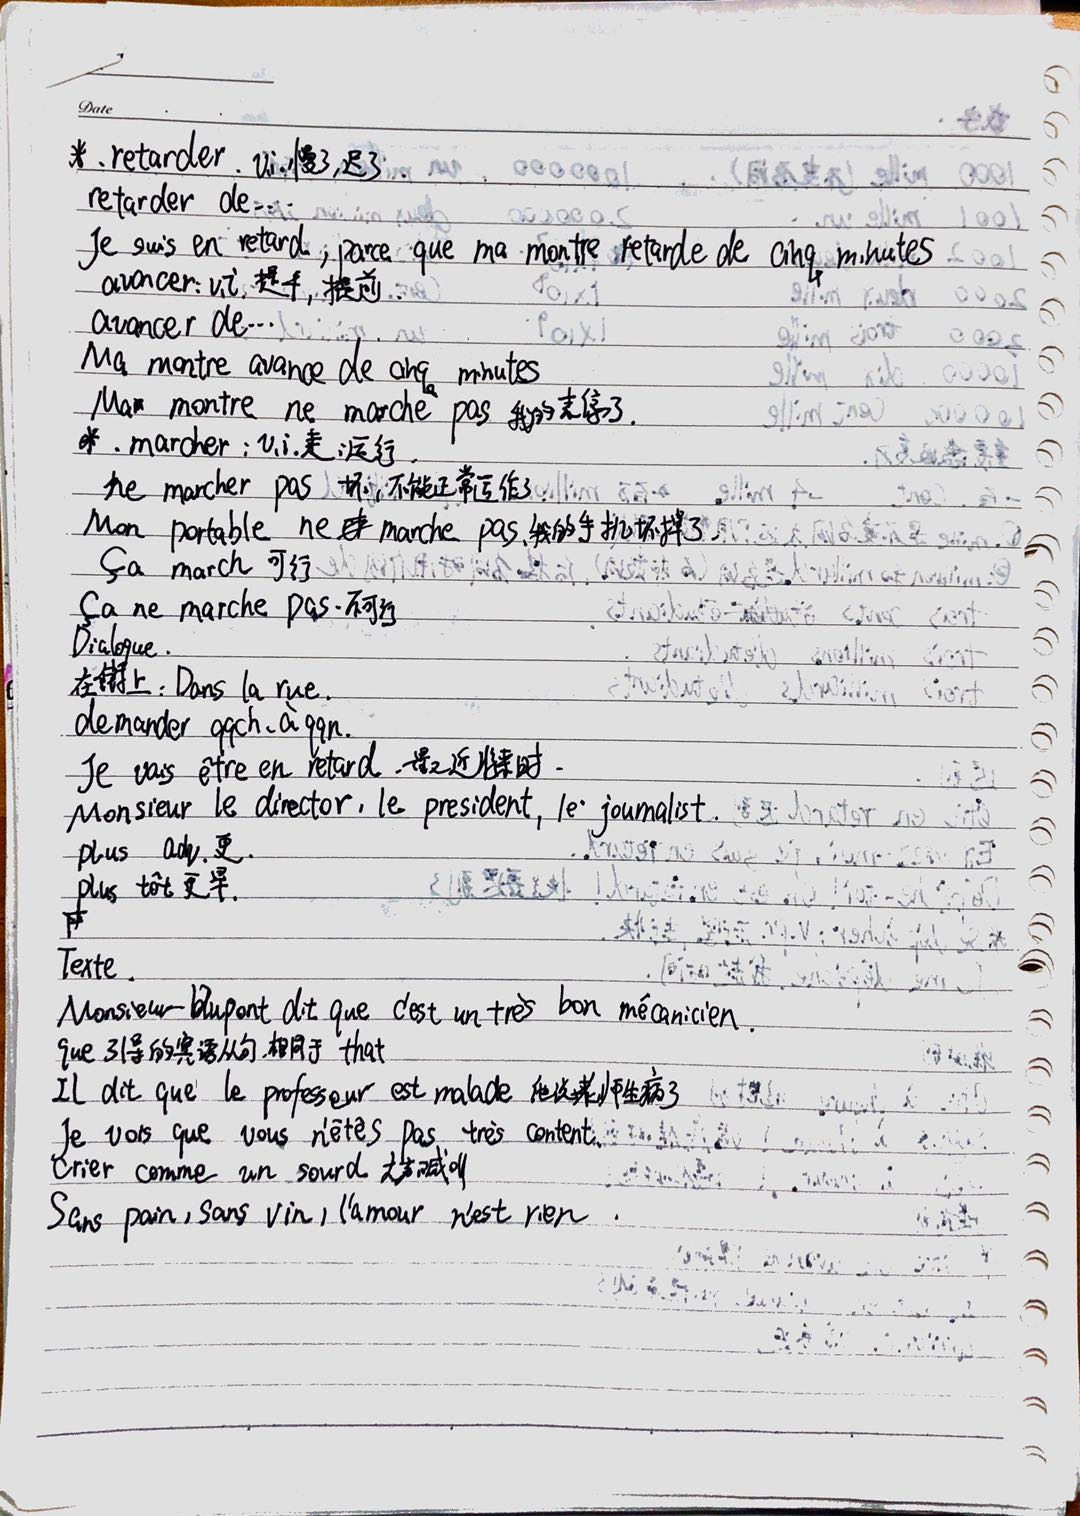 Date
* . retarder . v.i. 慢了, 迟了.
retarder de...
Je suis en retard, parce que ma montre retarde de cinq minutes
avancer: v.i. 提手, 提前.
avancer de...
Ma montre avance de cinq minutes
Ma montre ne marche pas 我的表停了.
* . marcher : v.i. 走;运行.
ne marcher pas 坏,不能正常运作了
Mon portable ne marche pas. 我的手机坏掉了.
Ça march 可行
Ça ne marche pas. 不可行
Dialogue.
在街上: Dans la rue.
demander qqch. à qqn.
Je vais être en retard. 最近将来时.
Monsieur le director, le president, le journalist.
plus adv. 更.
plus tôt 更早.
Texte.
Monsieur Dupont dit que c'est un très bon mécanicien.
que 引导的宾语从句.相同于 that
Il dit que le professeur est malade 他说老师生病了
Je vois que vous n'êtes pas très content.
Crier comme un sourd 大声喊叫
Sans pain, sans vin, l'amour n'est rien.